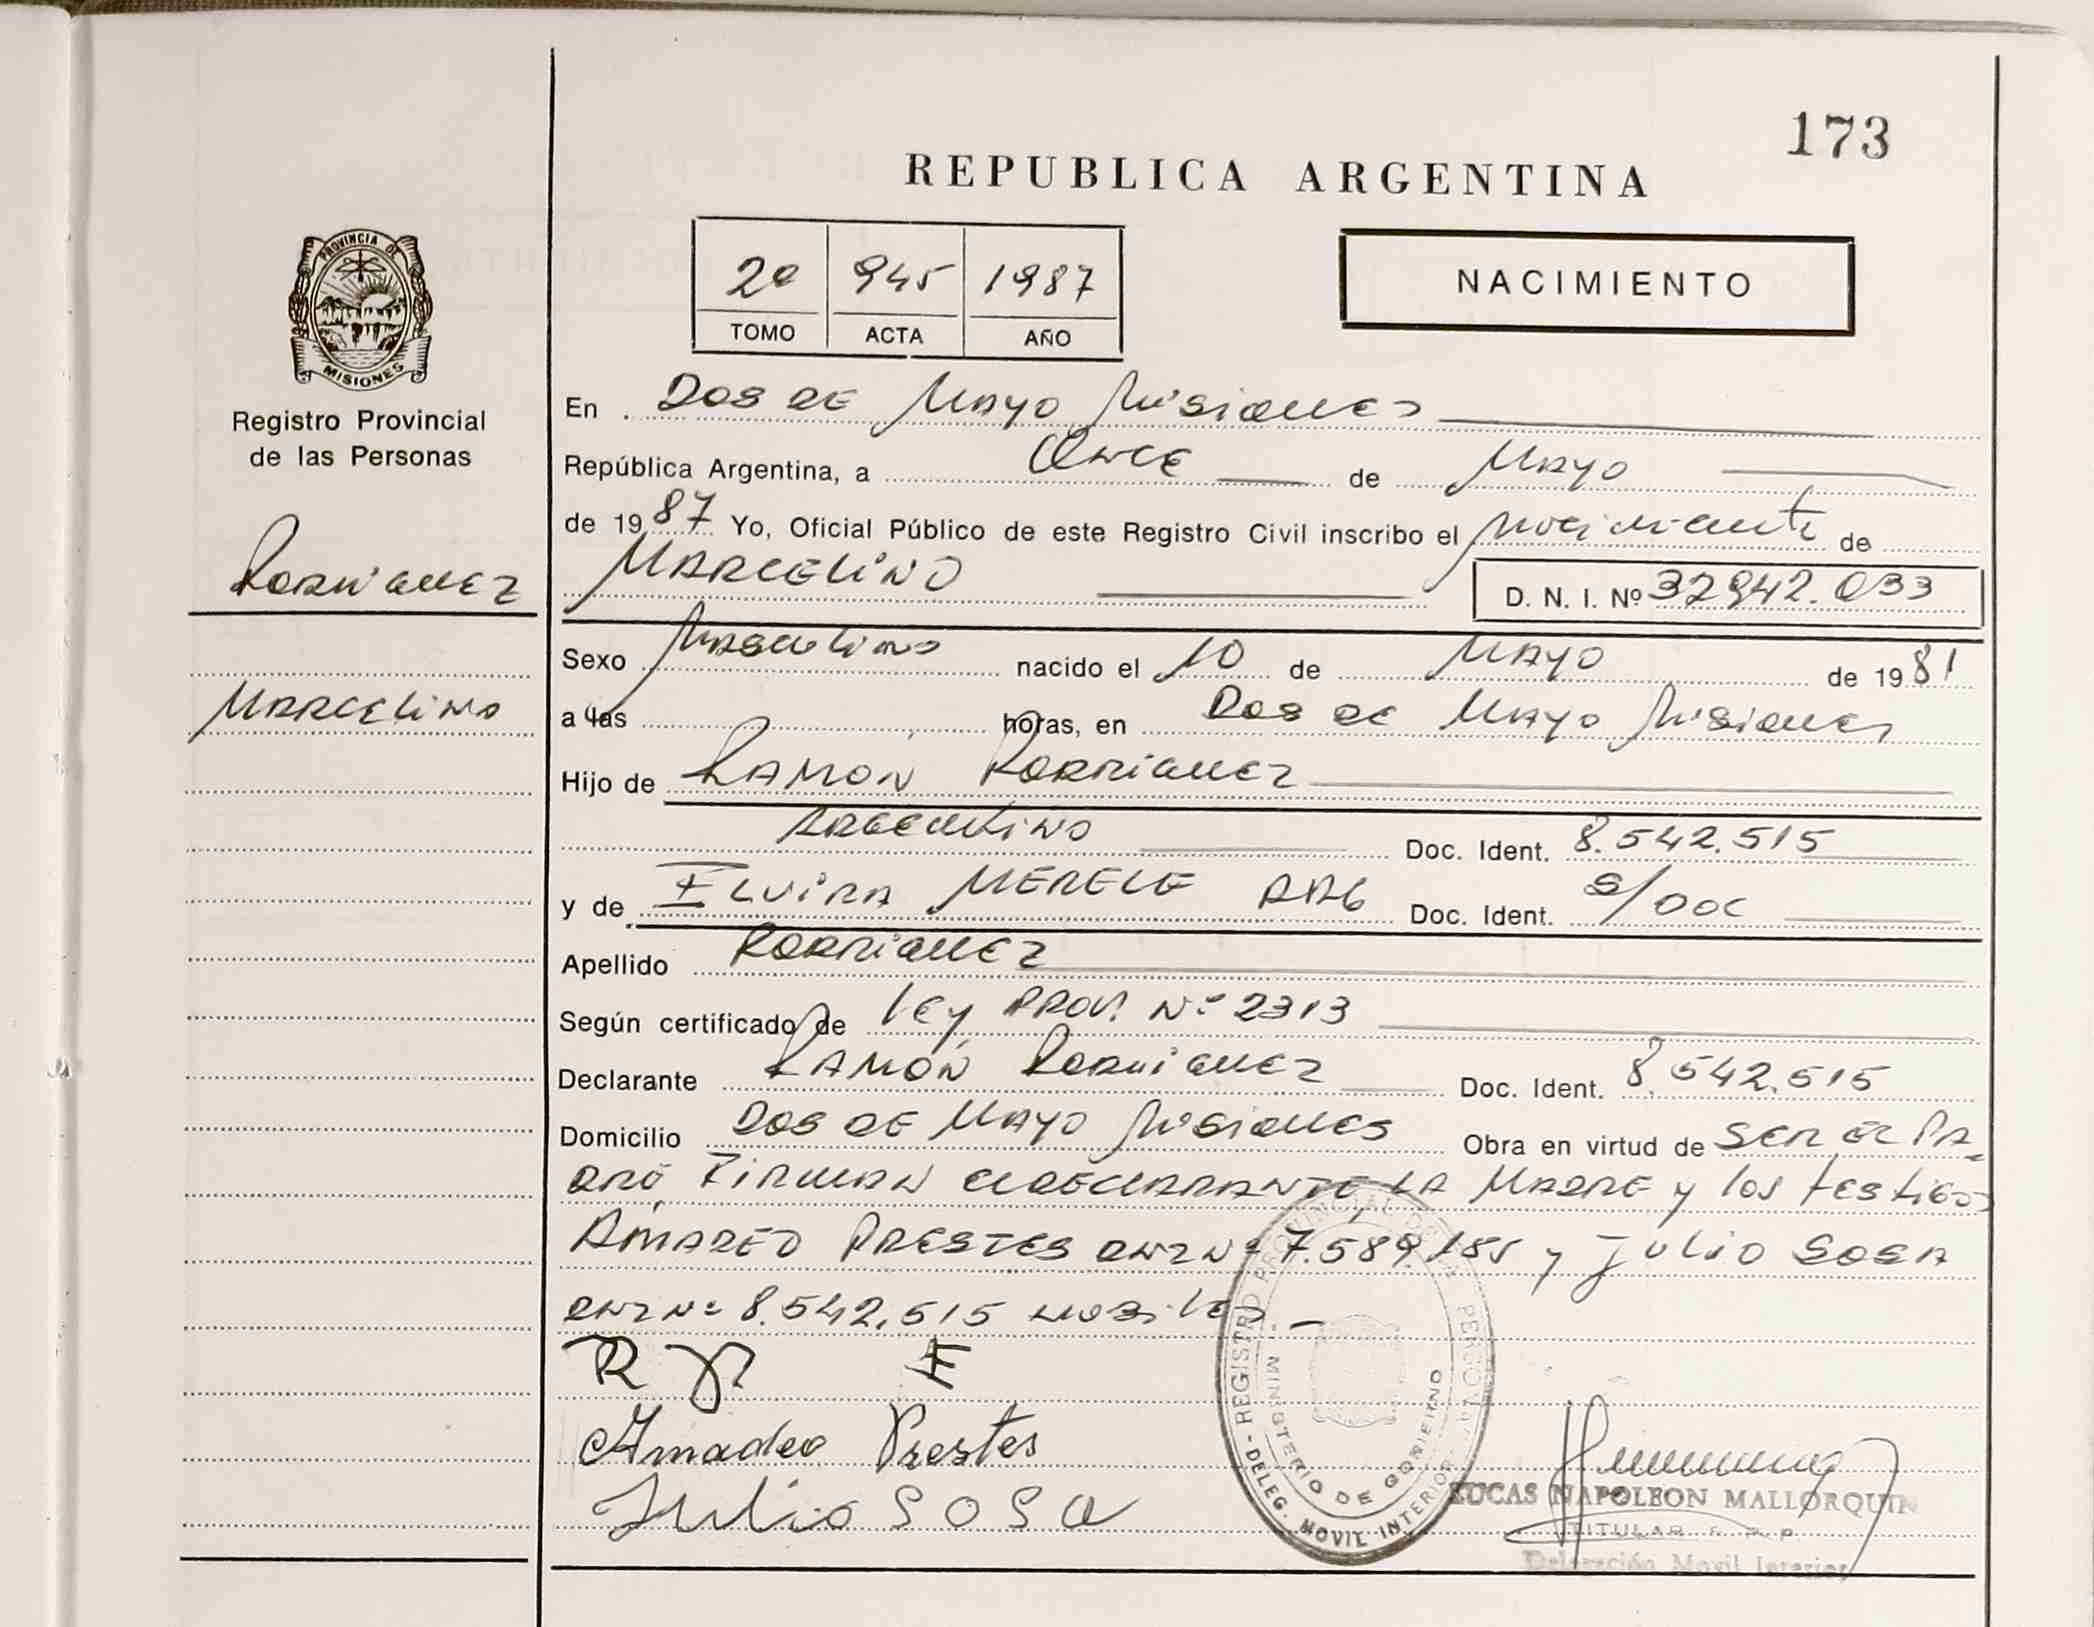 173
REPUBLICA ARGENTINA
2º 945 1987
TOMO ACTA AÑO
NACIMIENTO
PROVINCIA DE
MISIONES
Registro Provincial
de las Personas
RODRIGUEZ
MARCELINO
En DOS DE MAYO Misiones
República Argentina, a ONCE de MAYO
de 1987 Yo, Oficial Público de este Registro Civil inscribo el nacimiento de
MARCELINO D. N. I. Nº 32942.033
Sexo Masculino nacido el 10 de MAYO de 1981
a las horas, en DOS DE MAYO Misiones
Hijo de RAMON RODRIGUEZ
ARGENTINO Doc. Ident. 8.542.515
y de ELVIRA MERELE ARG Doc. Ident. S/DOC
Apellido RODRIGUEZ
Según certificado de LEY PROV. Nº 2313
Declarante RAMÓN RODRIGUEZ Doc. Ident. 8.542.515
Domicilio DOS DE MAYO Misiones Obra en virtud de SER EL PA-
DRE FIRMAN EL DECLARANTE LA MADRE y los testigos
AMADEO PRESTES DNI Nº 7.589.185 y Julio SOSA
DNI Nº 8.542.515
R E
Amadeo Prestes
Julio SOSA
REGISTRO PROVINCIAL DE PERSONAS
MINISTERIO DE GOBIERNO
DELEG. MOVIL INTERIOR
LUCAS NAPOLEON MALLORQUIN
TITULAR R. P. P.
Delegación Movil Interior